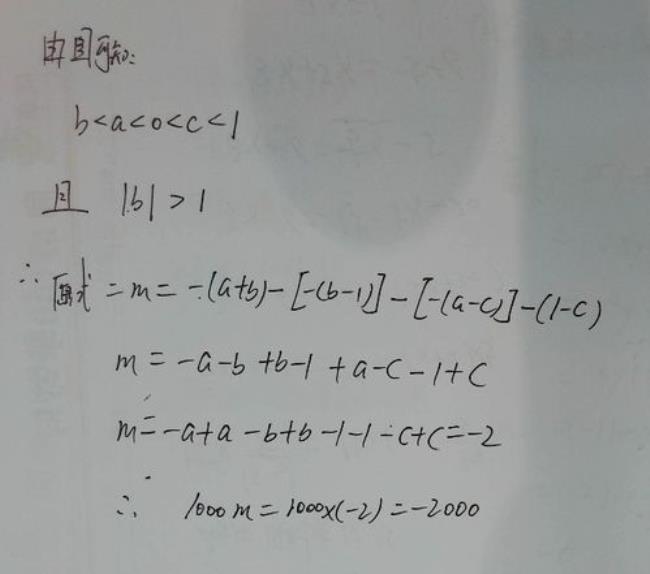 由图可知:
b<a<0<c<1
且 |b|>1
∴ 原式=m=-(a+b)-[-(b-1)]-[-(a-c)]-(1-c)
m=-a-b+b-1+a-c-1+c
m=-a+a-b+b-1-1-c+c=-2
∴ 1000m=1000×(-2)=-2000